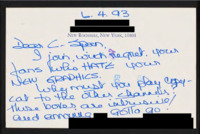 6.4.93
New York, 10008
Dear C-Span.
I join, with regret, your
fans who HATE your
NEW GRAPHICS.
why must you play copy-
cat to the other channels?
Those boxes are intrusive
and annoying. Gotta go.